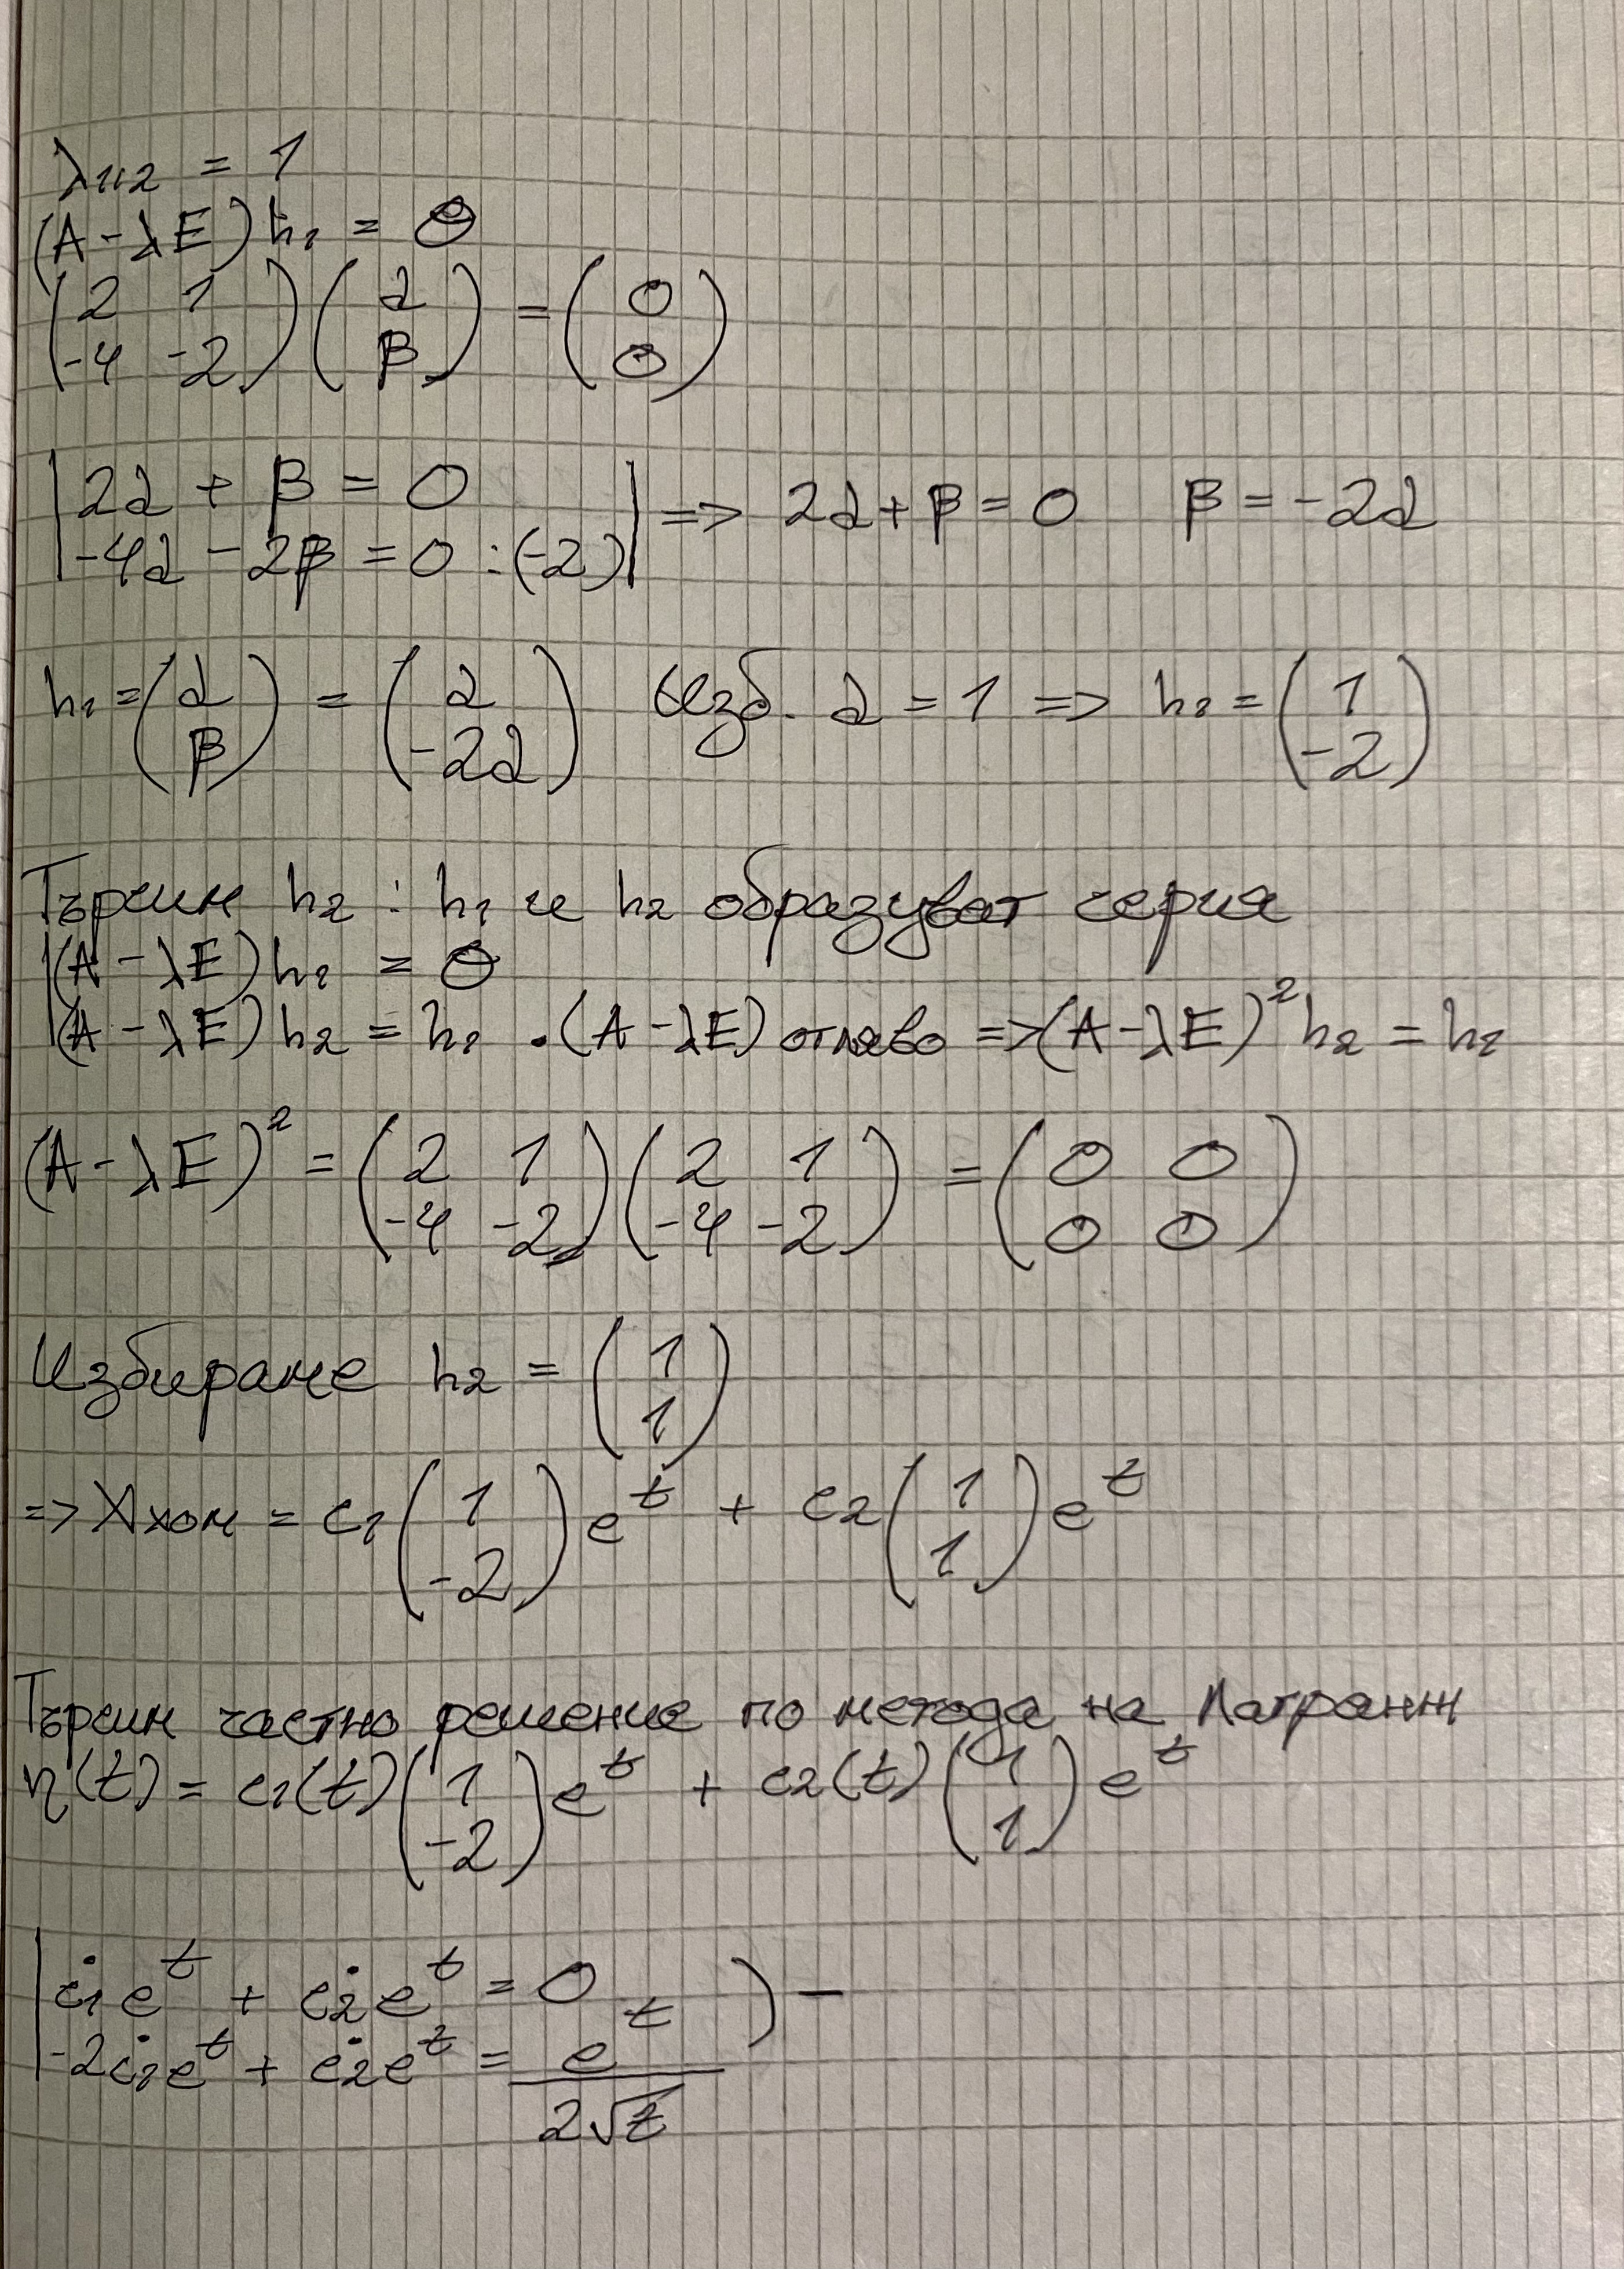 λ₁,₂ = 1
(A - λE)h₁ = Θ
(2 1; -4 -2)(α; β) = (0; 0)
|2α + β = 0
|-4α - 2β = 0 :(-2)| => 2α + β = 0 β = -2α
h₁ = (α; β) = (α; -2α) изб. α = 1 => h₁ = (1; -2)
Търсим h₂ : h₁ и h₂ образуват серия
|(A - λE)h₁ = Θ
|(A - λE)h₂ = h₁ .(A - λE) отляво => (A - λE)² h₂ = h₁
(A - λE)² = (2 1; -4 -2)(2 1; -4 -2) = (0 0; 0 0)
Избираме h₂ = (1; 1)
=> Xхом = c₁(1; -2)eᵗ + c₂(1; 1)eᵗ
Търсим частно решение по метода на Лагранж
η(t) = c₁(t)(1; -2)eᵗ + c₂(t)(1; 1)eᵗ
|ċ₁eᵗ + ċ₂eᵗ = 0 ) -
|-2ċ₁eᵗ + ċ₂eᵗ = eᵗ/2√t